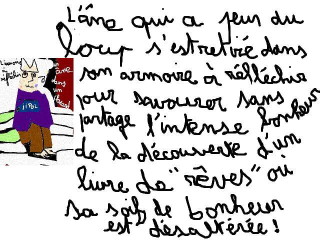 L'âne qui a peur du
loup s'estretiré dans
son armoire à réfléchir
pour savourer sans
partage l'intense bonheur
de la découverte d'un
livre de "rêves" où
sa soif de bonheur
est désaltérée!